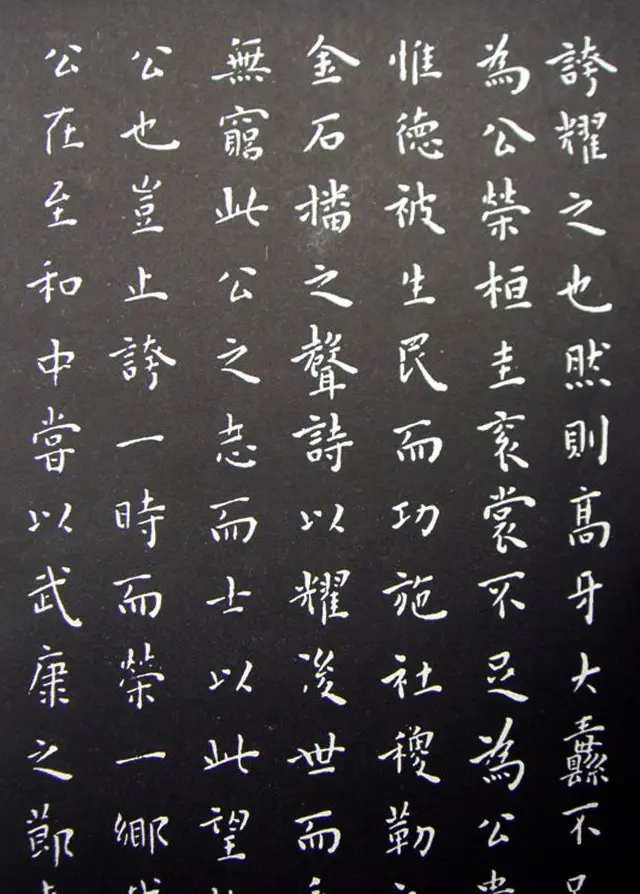 誇耀之也然則高牙大纛不
為公榮桓圭衮裳不足為公
惟德被生民而功施社稷勒
金石播之聲詩以耀後世而
無窮此公之志而士以此望
公也豈止誇一時而榮一鄉
公在至和中嘗以武康之節